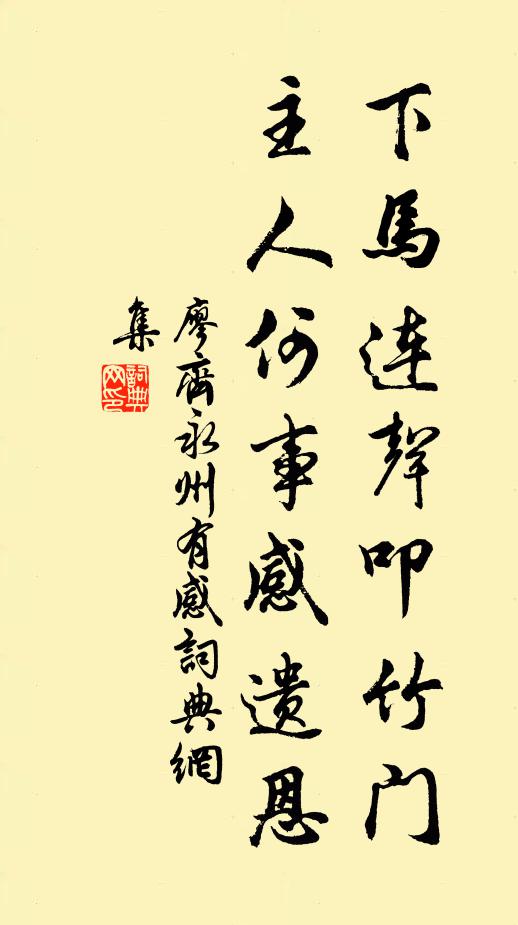 下馬連聲叩竹门
主人何事感遺恩
廖齊永州有感詞典網
集
詞典
网印